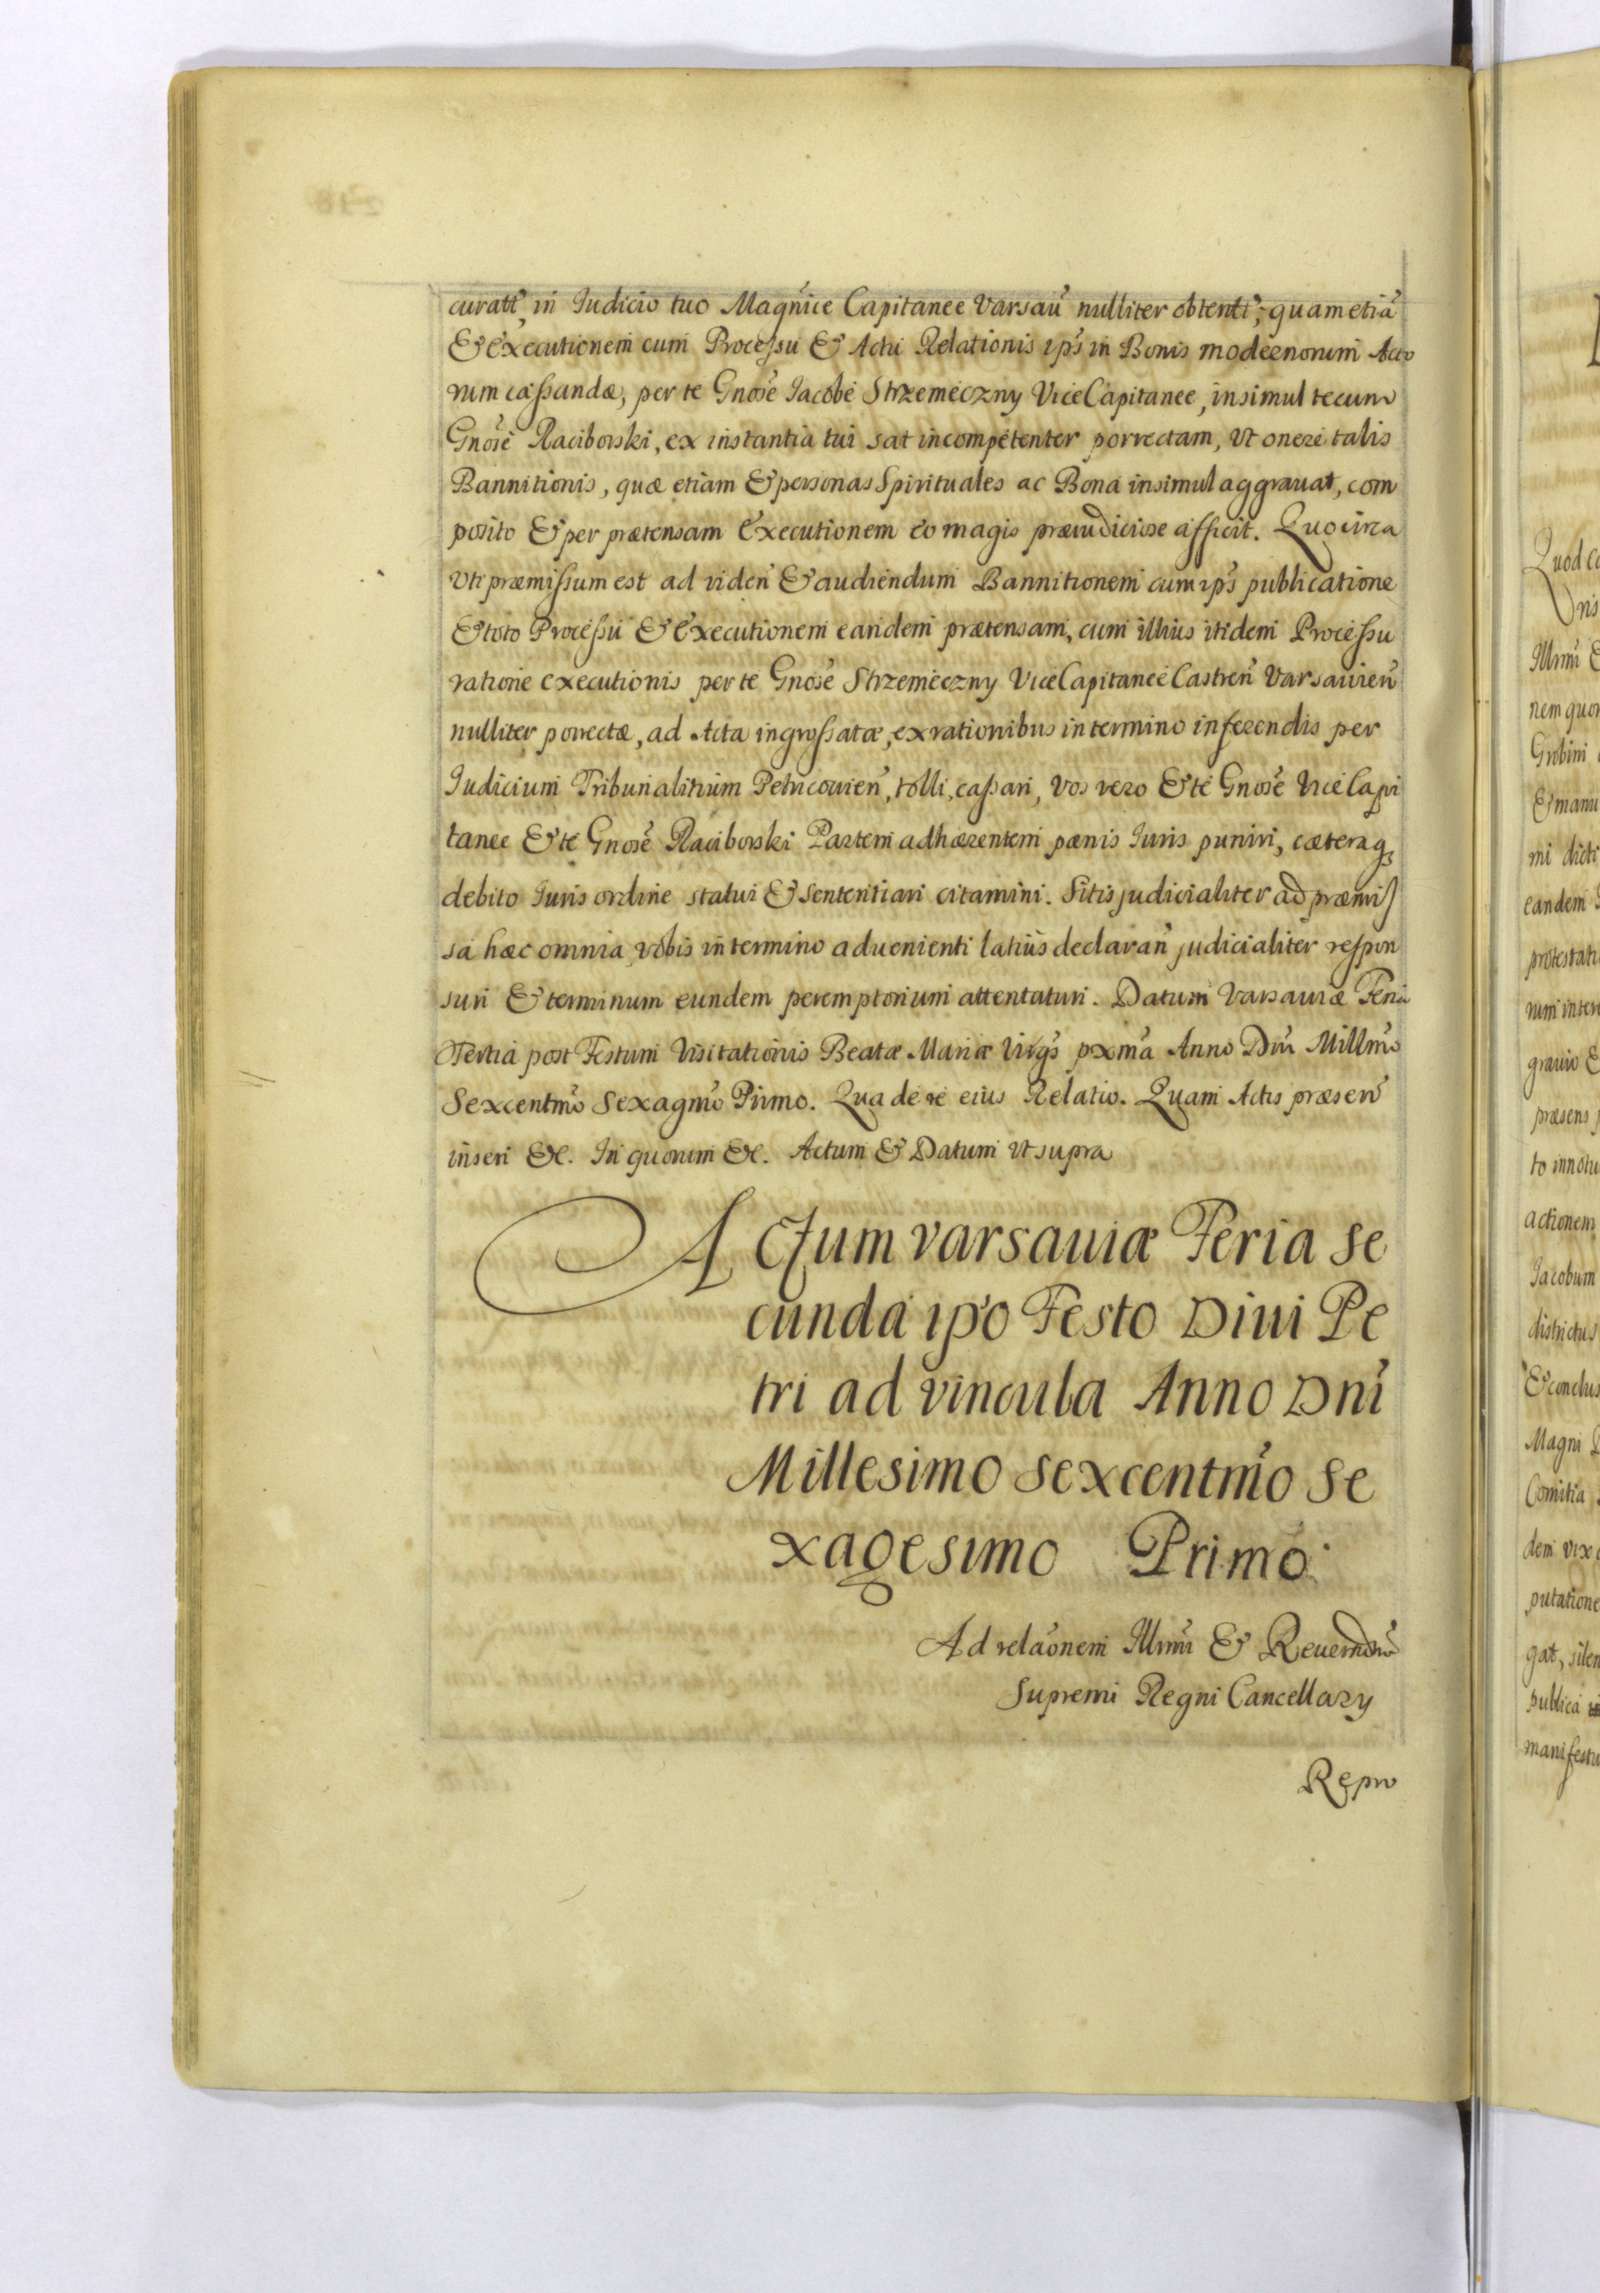 curatt, in Iudicio tuo Magn̄ice Capitanee Varsau̅ nulliter obtent̅, quam etia̅
& executionem cum Processu & Actu Relationis ip̅s in Bonis modernorum Acto
rum cassandæ, per te Gnose̅ Iacobe Strzemeczny ViceCapitanee, insimul tecum
Gnose̅ Raciborski, ex instantia tui sat incompetenter porrectam, Vt onere talis
Bannitionis, quæ etiam & personas Spirituales ac Bona insimul aggrauat, com
posito & per prætensam Executionem eo magis præiudiciose afficit. Quocirca
Vti præmissum est ad viden̅ & audiendum Bannitionem cum ip̅s publicatione
& toto Processu & Executionem eandem prætensam, cum illius itidem Processu
ratione executionis per te Gnose̅ Strzemeczny ViceCapitanee Castren̅ Varsauien̅
nulliter porrectæ, ad Acta ingrossatæ, ex rationibus in termino inferendis per
Iudicium Tribunalitium Petricouien̅, tolli, cassari, Vos vero & te Gnose̅ ViceCapi
tanee & te Gnose̅ Raciborski Partem adhærentem pænis Iuris puniri, cæteraq;
debito Iuris ordine statui & sententiari citamini. Sitis judicialiter ad præmis
sa hæc omnia vobis in termino aduenienti latius declaran̅ judicialiter respon
suri & terminum eundem peremptorium attentaturi. Datum Varsauiæ Feria
Tertia post Festum Visitationis Beatæ Mariæ Virg̅s pxm̅a Anno Dn̅i Millm̅o
Sexcentm̅o Sexagm̅o Primo. Qua de re eius Relatio. Quam Actis præsen̅
inseri &c. In quorum &c. Actum & Datum Vt supra
ACtum Varsauiæ Feria Se
cunda ip̅o Festo Diui Pe
tri ad vincula Anno Dn̅i
Millesimo Sexcentm̅o Se
xagesimo Primo.
Ad rela̅onem Illmi̅ & Reuerndm̅i
Supremi Regni Cancellary
Repro
Quod
Illmi̅ &
nem quo
& manu
mi dicti
eandem
protestati
rum inter
grauio &
præsens
to innotu
actionem
Iacobum
districtus
& conclus
Magni
Comitia
dem vix
putatione
gat, silen
publica
manifestu